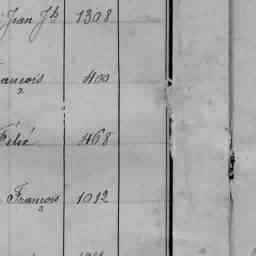 Jean Jh 1308
rancois 400
Félix 468
François 1012